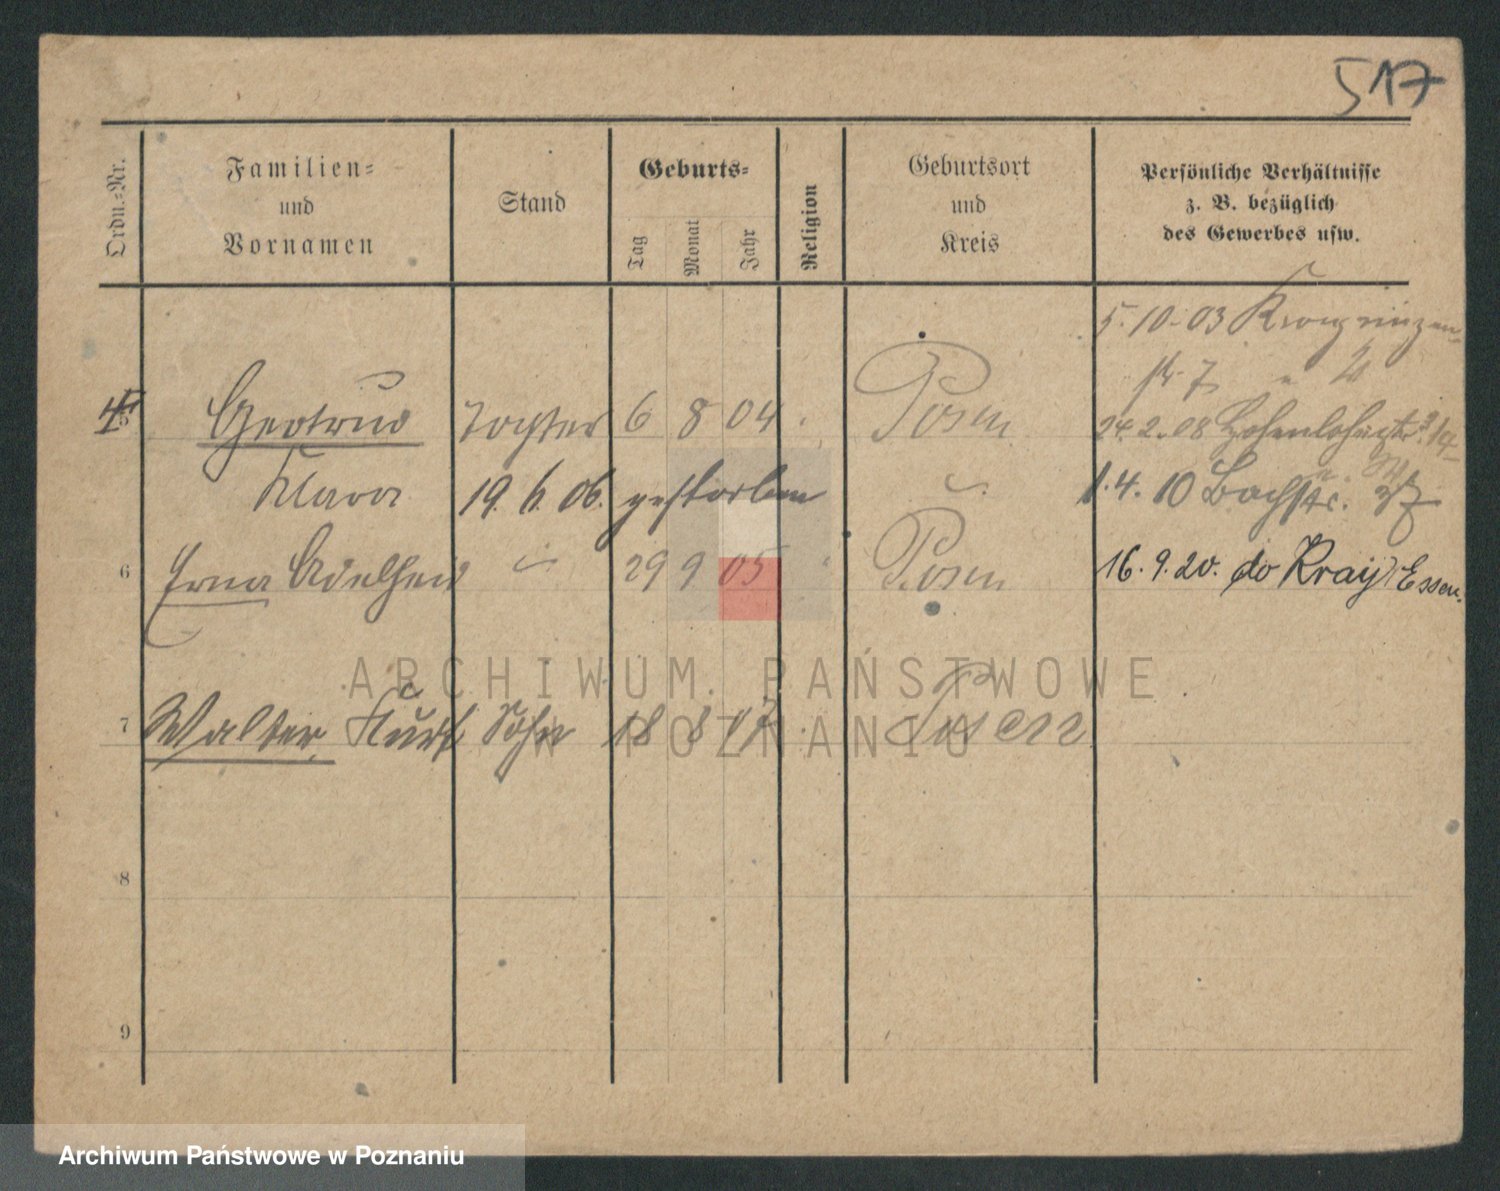 517
Ordn.-Nr.
Familien-
und
Vornamen
Stand
Geburts-
Tag
Monat
Jahr
Religion
Geburtsort
und
Kreis
Persönliche Verhältnisse
z. B. bezüglich
des Gewerbes usw.
5. 10. 03 Kronprinzen-
str. 7
5 Gertrud Tochter 6 8 04 Posen
24. 2. 08 Hohenlohestr.
Klara 19. 6. 06. gestorben
1. 4. 10 Bachstr.
6 Erna Adelheid 29 9 05 Posen
16. 9. 20. do Kray/Essen.
7 Walter Kurt Sohn 18 8 17 Posen
8
9
ARCHIWUM PAŃSTWOWE
W POZNANIU
Archiwum Państwowe w Poznaniu